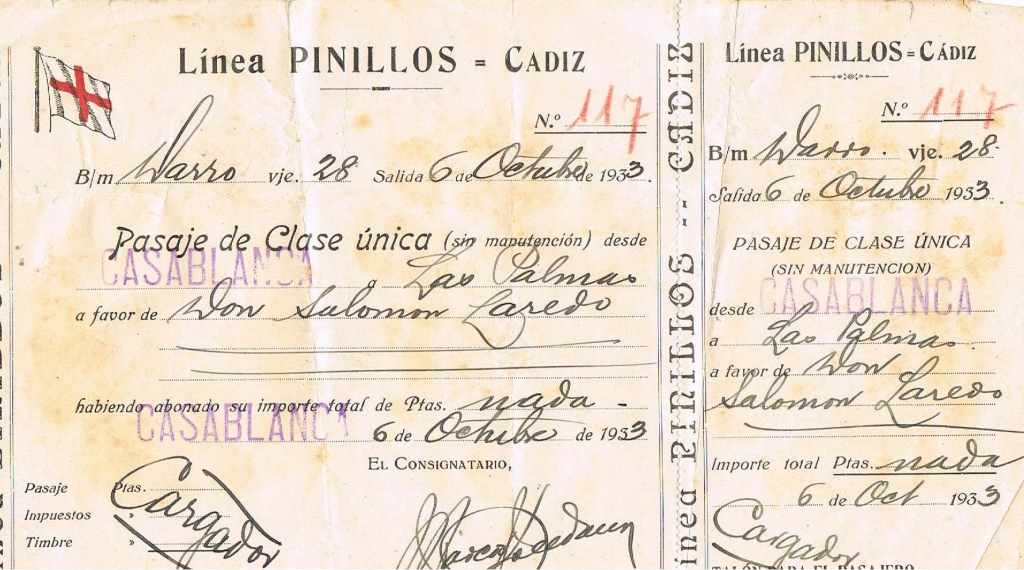 Línea PINILLOS = CADIZ
N.º 117
B/m Darro vje. 28 Salida 6 de Octubre de 1933.
Pasaje de Clase única (sin manutención) desde
CASABLANCA a Las Palmas
a favor de Don Salomon Laredo
habiendo abonado su importe total de Ptas. nada -
CASABLANCA 6 de Octubre de 1933
EL CONSIGNATARIO,
Pasaje Ptas.
Impuestos »
Timbre »
Cargador
Línea PINILLOS -- CADIZ
Línea PINILLOS = CÁDIZ
N.º 117
B/m Darro. vje. 28-
Salida 6 de Octubre 1933.
PASAJE DE CLASE ÚNICA
(SIN MANUTENCION)
desde CASABLANCA
a Las Palmas
a favor de Don
Salomon Laredo
Importe total Ptas. nada
6 de Oct 1933
Cargador
TALÓN PARA EL PASAJERO